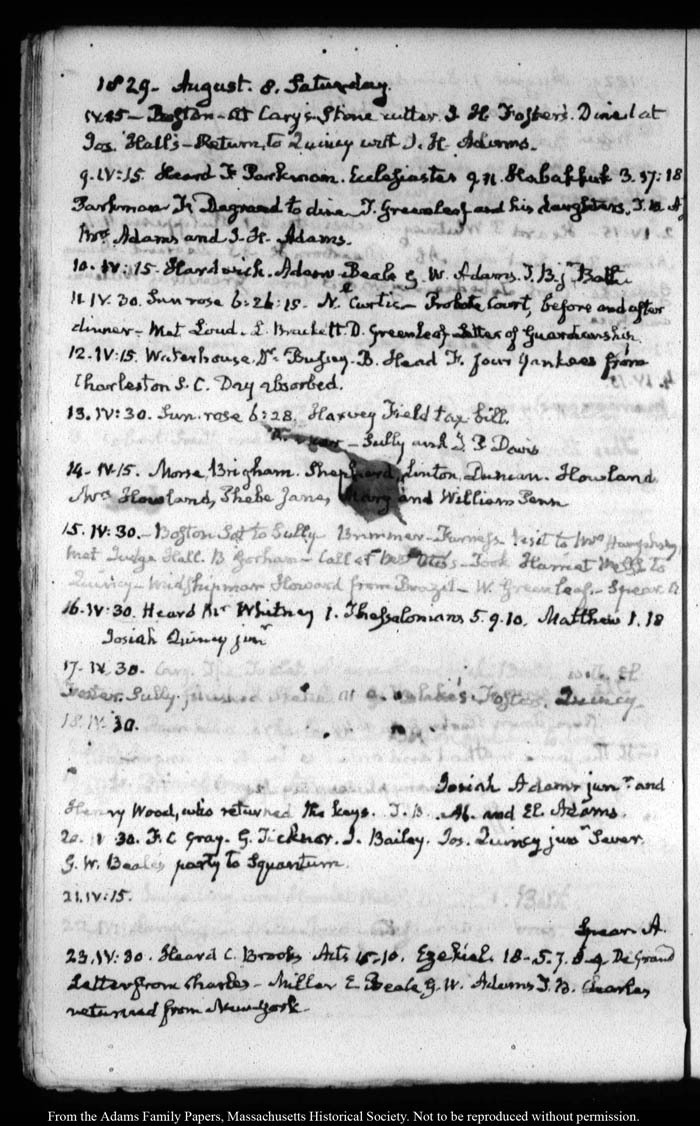 1829- August. 8. Saturday.
IV.45- Boston- At Cary's- Stone cutter. I. H. Foster's. Dined at
Jos. Hall's- Return to Quincy with I. H. Adams.
9. IV:15. Heard F Parkman. Ecclesiastes 9.11. Habakkuk 3. 17:18
Parkman Dr Degrand to dine. T. Greenleaf and his daughters. T. B A
Mrs Adams and I. H. Adams.
10. IV:15. Hardwick. Adam Beale G. W. Adams. T. B. jr Bath
11. IV.30. Sun rose 6:26:15. N. Curtis- Probate Court, before and after
dinner- Met Loud- L. Brackett D. Greenleaf- Letter of Guardianship.
12. IV:15. Waterhouse. Dr Bussey. B. Head Jr four Yankees from
Charleston S. C. Day absorbed.
13. IV:30. Sun rose 6:28. Harvey Field tax bill.
Sully and I. P. Davis
14- IV.15. Morse, Brigham. Shepherd, Linton, Duncan. Howland
Mrs Howland, Phebe Jane, Mary and William Penn
15. IV:30.- Boston Sat to Sully Brimmer- Furness Visit to Mrs Humphrey,
met Judge Hall. B Gorham- Call at Mrs Otis- Took Harriet Welsh to
Quincy- Midshipman Howard from Brazil- W. Greenleaf- Spear A
16. IV:30. Heard Mr Whitney 1. Thessalonians 5. 9. 10. Matthew 1. 18
Josiah Quincy junr
17. IV.30.
Foster. Sully. finished Blake's. Foster. Quincy
18. IV.30.
Josiah Adams junr and
Henry Wood, who returned the keys. T. B. Ab. and El. Adams.
20. 30. F. C Gray. G. Ticknor. I. Bailey. Jos. Quincy junr Sever.
G. W. Beale's party to Squantum.
21. IV:15.
Spear A.
23. IV:30. Heard C. Brooks Acts 15-10. Ezekiel. 18-5. 7. 8. 9 De Grand
Letter from Charles- Miller E Beale G. W. Adams T. B. Charles
returned from New York.
From the Adams Family Papers, Massachusetts Historical Society. Not to be reproduced without permission.